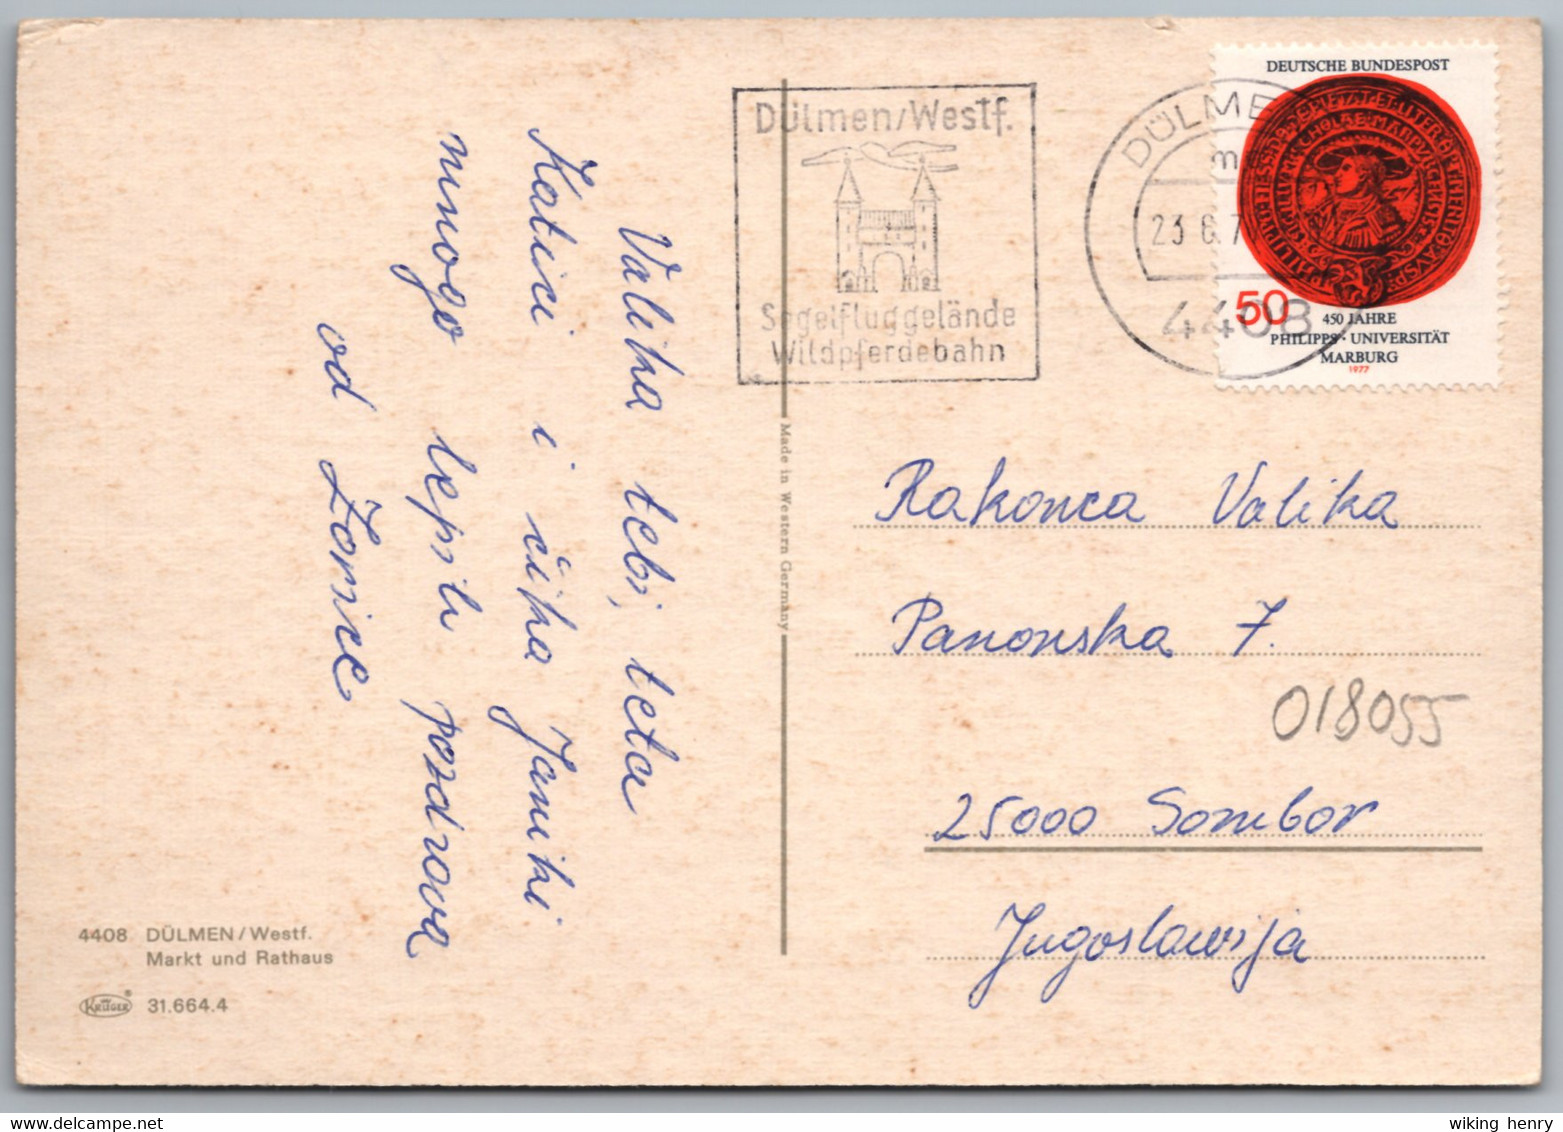 Valika tebi, teta
Katici i čika Janiki
mnogo lepih pozdrava
od Zorice
4408 DÜLMEN/Westf.
Markt und Rathaus
KRÜGER® 31.664.4
Made in Western Germany
Dülmen/Westf.
Segelfluggelände
Wildpferdebahn
DÜLME
23 6.7
4408
DEUTSCHE BUNDESPOST
50
450 JAHRE
PHILIPPS · UNIVERSITÄT
MARBURG
1977
Rakonca Valika
Panonska 7.
018055
25000 Sombor
Jugoslawija
wiking henry